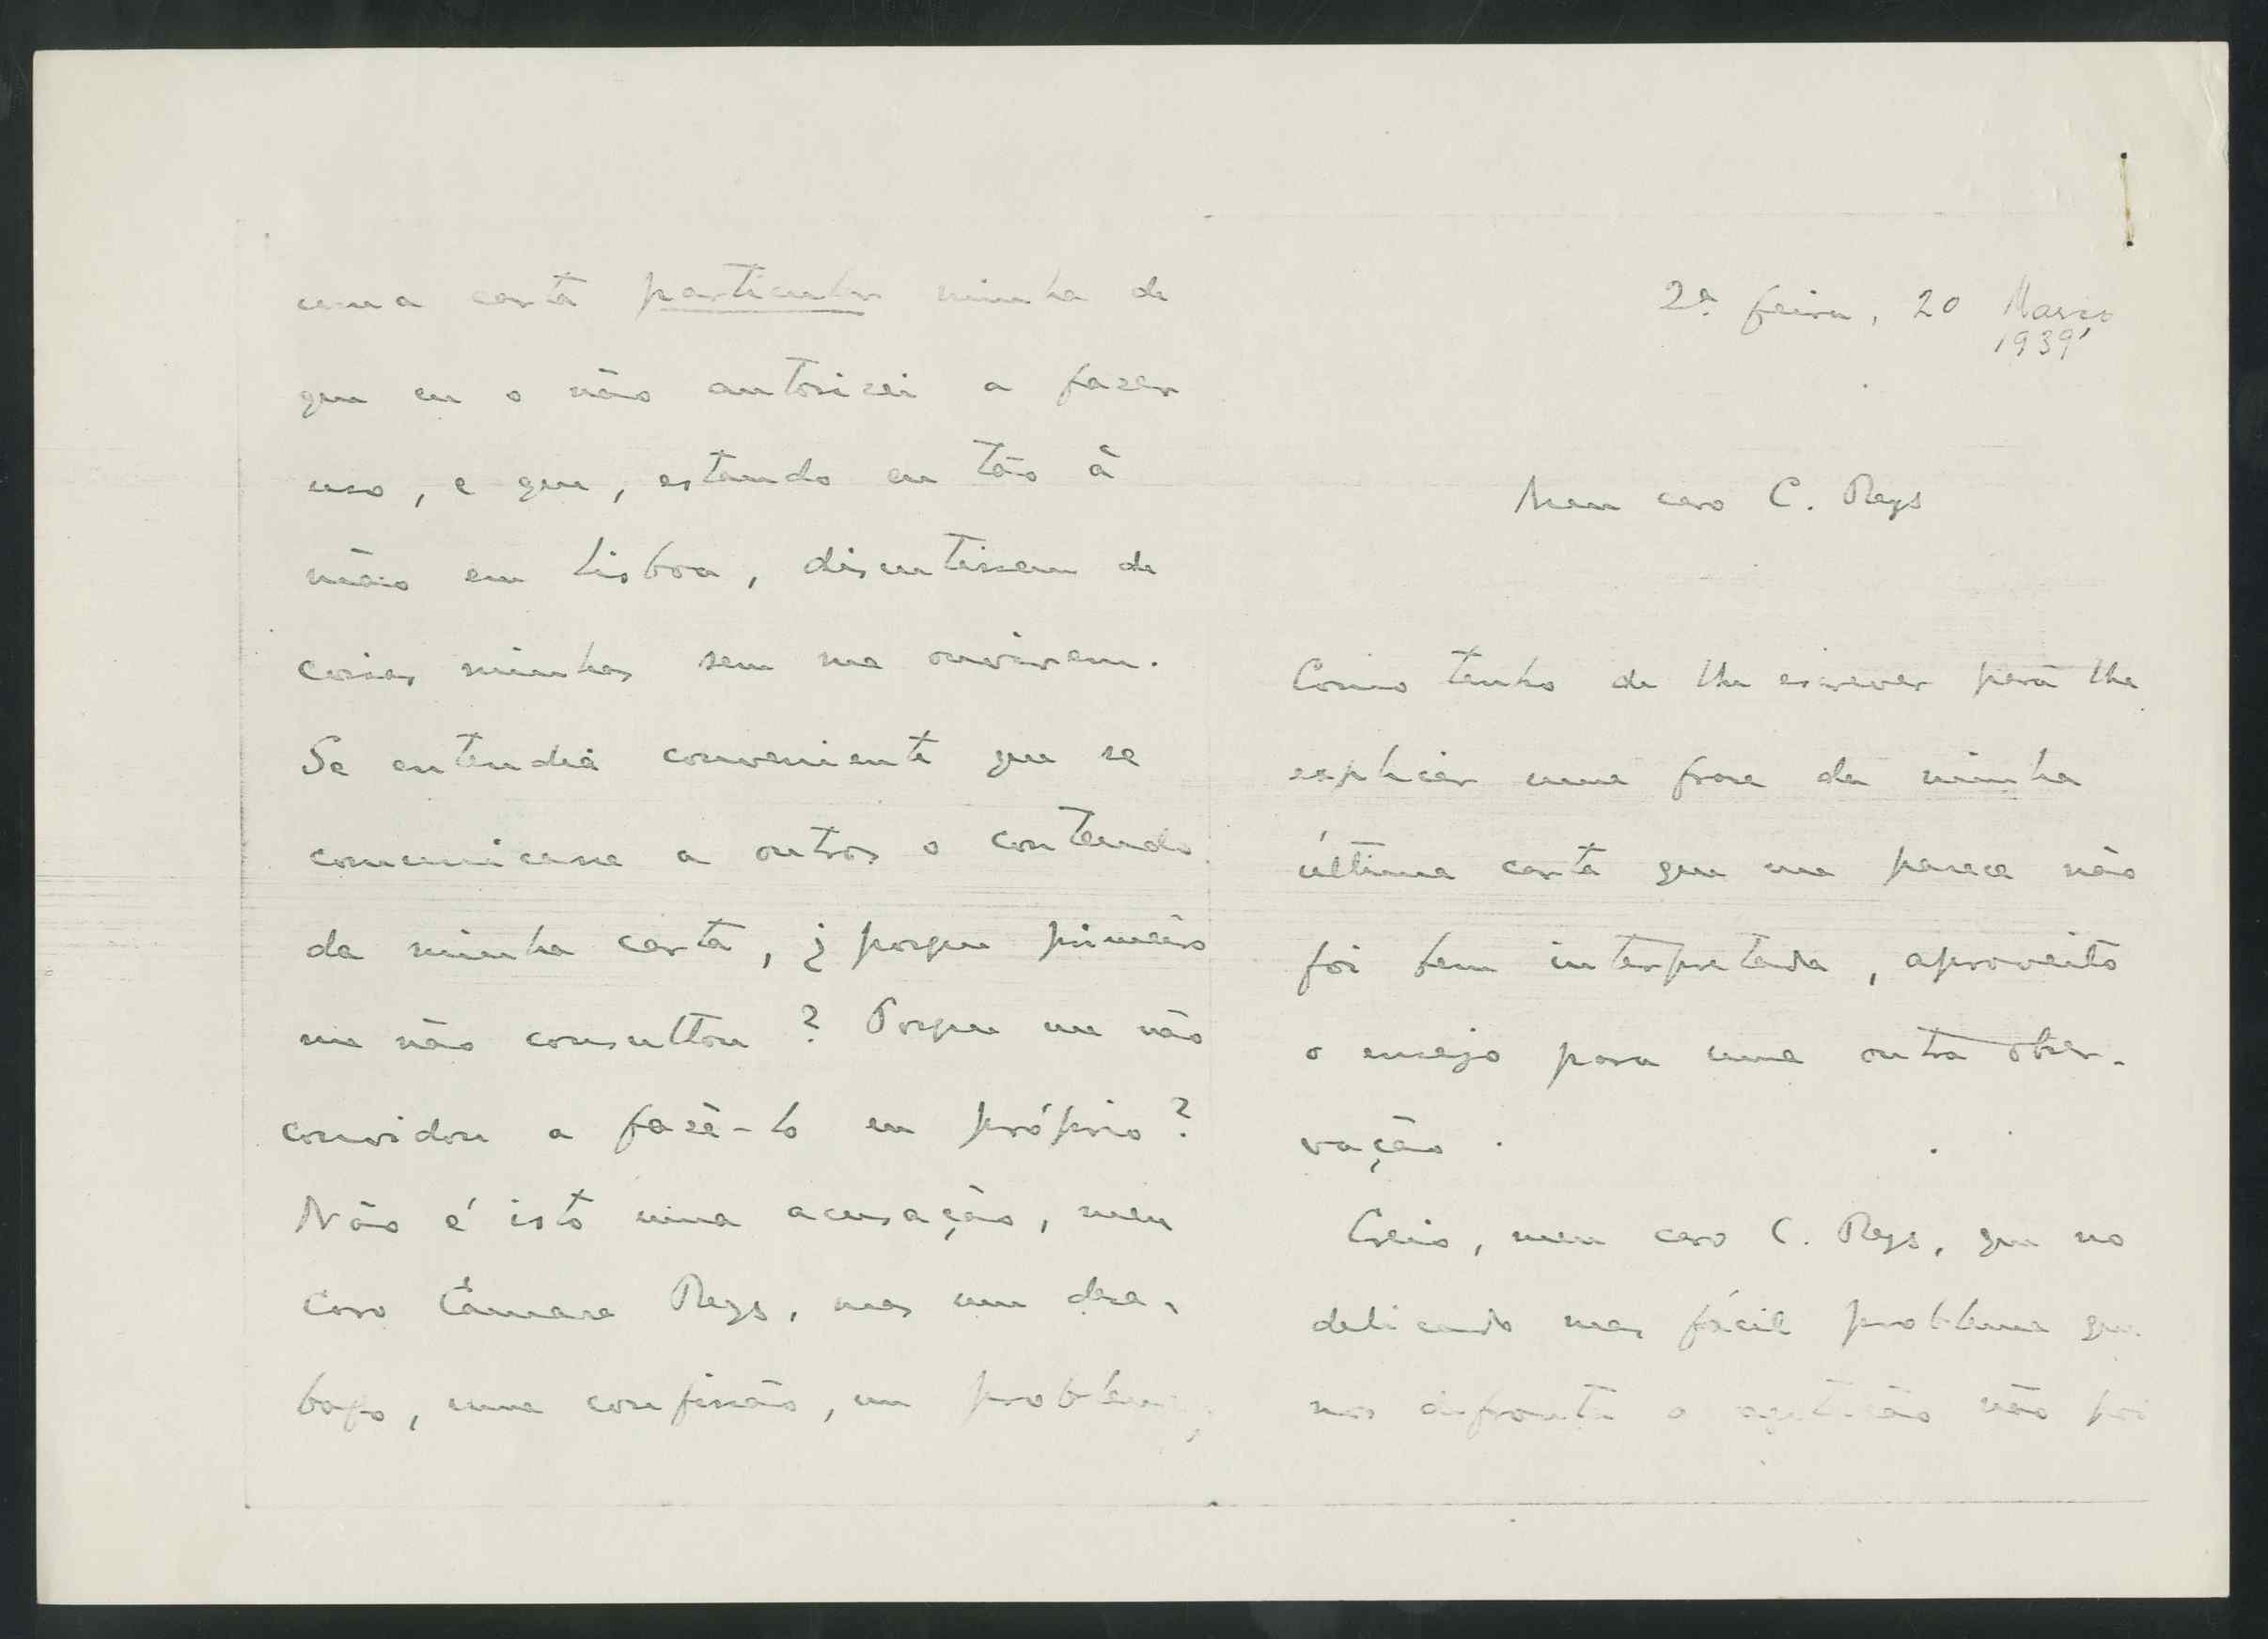 2ª feira, 20 Março
1939
Meu caro C. Reys
Como tenho de lhe escrever para lhe
explicar uma frase da minha
última carta que me parece não
foi bem interpretada, aproveito
o ensejo para uma outra obser-
vação.
Creio, meu caro C. Reys, que no
delicado mas fácil problema que
nos defronta a não foi
uma carta particular minha de
que eu o não autorizei a fazer
uso, e que, estando eu tão à
mão em Lisboa, discutissem de
coisas minhas sem me ouvirem.
Se entendia conveniente que se
comunicasse a outros o conteudo
da minha carta, ¿ porque primeiro
me não consultou? Porque me não
convidou a fazê-lo eu próprio?
Não é isto uma acusação, meu
Caro Câmara Reys, mas um desa-
bafo, uma confissão, um problema,